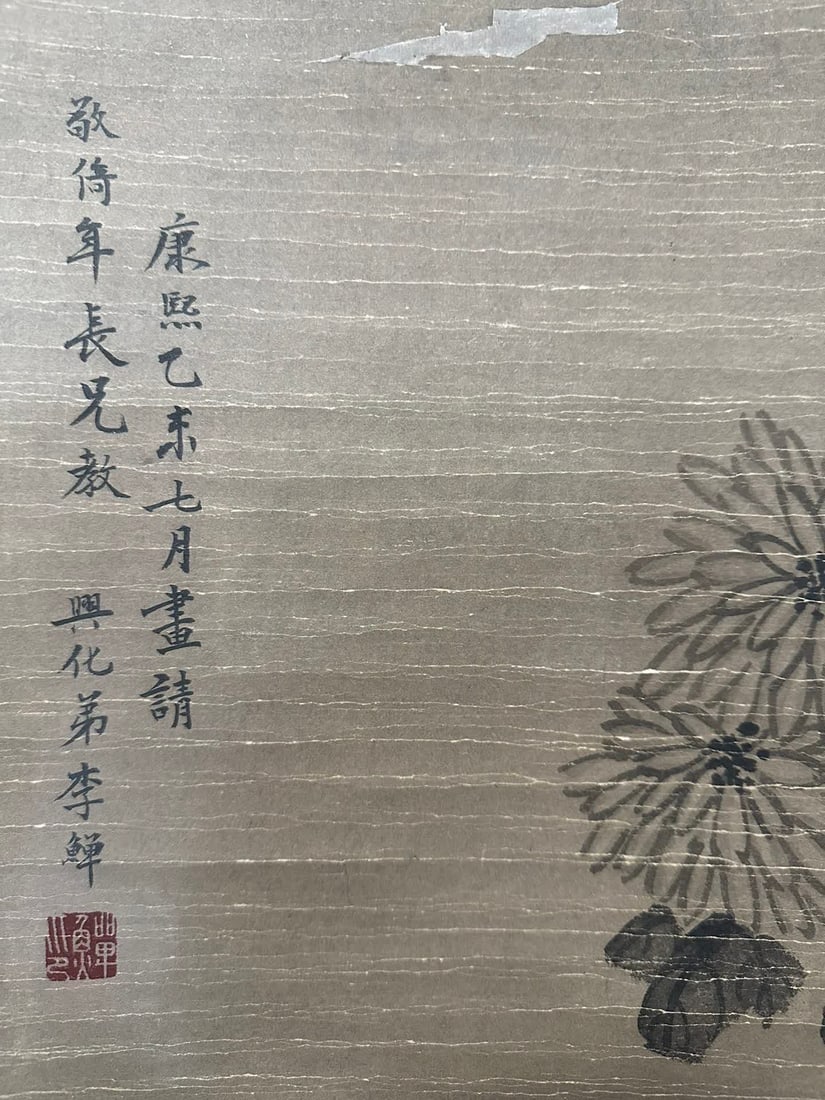 康熙乙未七月畫請
敬倚年長兄教 興化弟李鱓